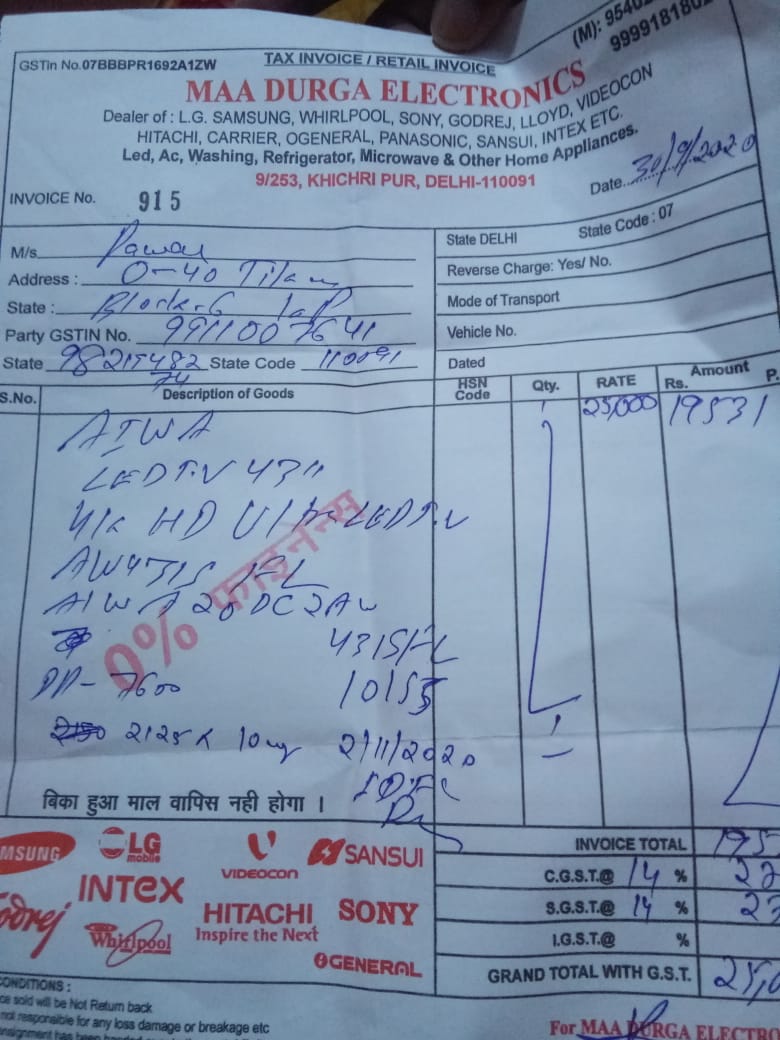 (M): 9540
9999181802
GSTin No.07BBBPR1692A1ZW
TAX INVOICE / RETAIL INVOICE
MAA DURGA ELECTRONICS
Dealer of : L.G. SAMSUNG, WHIRLPOOL, SONY, GODREJ, LLOYD, VIDEOCON
HITACHI, CARRIER, OGENERAL, PANASONIC, SANSUI, INTEX ETC.
Led, Ac, Washing, Refrigerator, Microwave & Other Home Appliances.
9/253, KHICHRI PUR, DELHI-110091
INVOICE No. 915
Date 30/9/2020
M/s
Address : 0-40
State : Block-G
Party GSTIN No. 9911007641
State 98215482 State Code 110091
74
State DELHI State Code : 07
Reverse Charge: Yes/ No.
Mode of Transport
Vehicle No.
Dated
S.No. Description of Goods HSN Code Qty. RATE Amount Rs. P.
AIWA 1 25,000 19531
LED T.V 43"
4K HD LED T.V
0% फाइनेन्स
43
DP- 7600 10155
2125 X 10 2/11/2020
IDFC
बिका हुआ माल वापिस नही होगा ।
MSUNG LG mobile VIDEOCON SANSUI
INTEX HITACHI Inspire the Next SONY
Godrej Whirlpool GENERAL
INVOICE TOTAL 195
C.G.S.T.@ 14 % 27
S.G.S.T.@ 14 % 27
I.G.S.T.@ %
GRAND TOTAL WITH G.S.T. 25,0
CONDITIONS :
ce sold will be Not Return back
not responsible for any loss damage or breakage etc
onsignment has been
For MAA DURGA ELECTRO